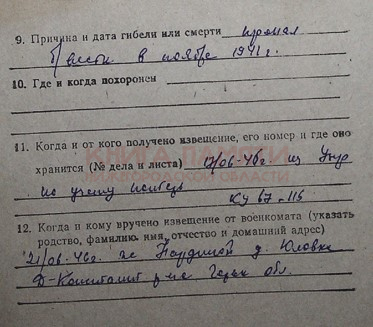 9. Причина и дата гибели или смерти пропал
б/вести в ноябре 1941 г.
10. Где и когда похоронен
11. Когда и от кого получено извещение, его номер и где оно
КНИГА ПАМЯТИ
хранится (№ дела и листа) 17/06-46 г. из Упр
НИЖЕГОРОДСКОЙ ОБЛАСТИ
по учету
КУ 67-115
12. Когда и кому вручено извещение от военкомата (указать
родство, фамилию, имя, отчество и домашний адрес)
21/06-46 г. д. Юловка
Д-Константин р-на Горьк обл.